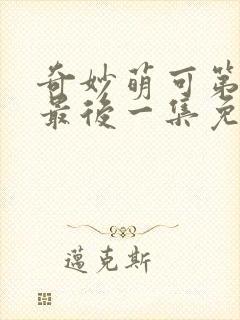 奇妙萌可第
最後一集免
邁克斯